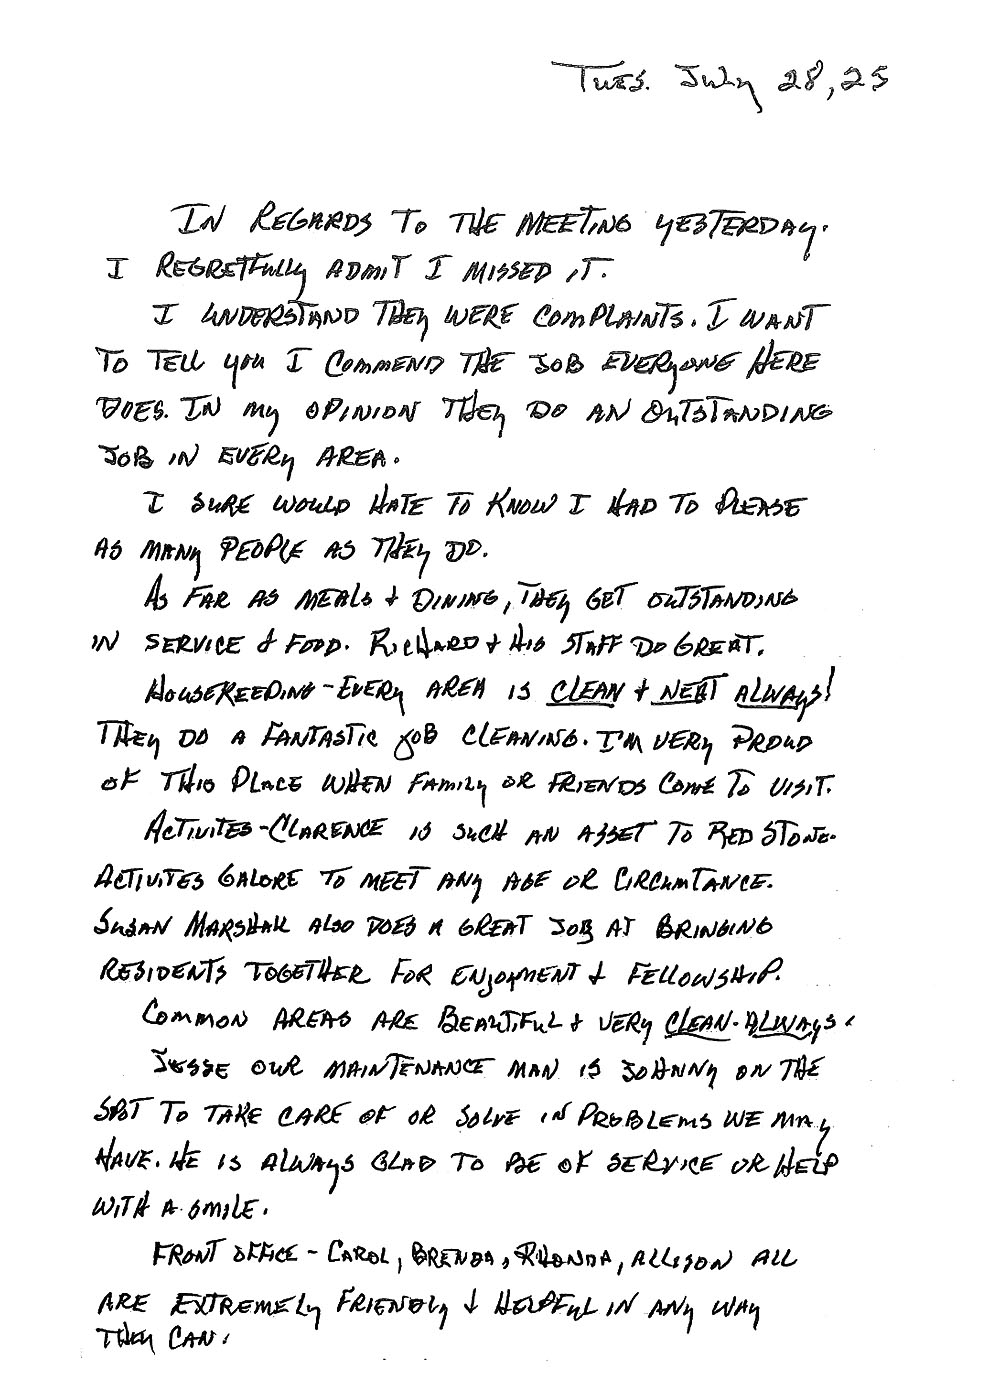 TUES. July 28, 25
IN REGARDS TO THE MEETING YESTERDAY.
I REGRETFULLY ADMIT I MISSED IT.
I UNDERSTAND THEY WERE COMPLAINTS. I WANT
TO TELL YOU I COMMEND THE JOB EVERYONE HERE
DOES. IN MY OPINION THEY DO AN OUTSTANDING
JOB IN EVERY AREA.
I SURE WOULD HATE TO KNOW I HAD TO PLEASE
AS MANY PEOPLE AS THEY DO.
AS FAR AS MEALS & DINING, THEY GET OUTSTANDING
IN SERVICE & FOOD. RICHARD & HIS STAFF DO GREAT.
HOUSEKEEDING - EVERY AREA IS CLEAN & NEAT ALWAYS!
THEY DO A FANTASTIC JOB CLEANING. I'M VERY PROUD
OF THIS PLACE WHEN FAMILY OR FRIENDS COME TO VISIT.
ACTIVITES - CLARENCE IS SUCH AN ASSET TO RED STONE.
ACTIVITES GALORE TO MEET ANY AGE OR CIRCUMTANCE.
SUSAN MARSHAK ALSO DOES A GREAT JOB AT BRINGING
RESIDENTS TOGETHER FOR ENJOYMENT & FELLOWSHIP.
COMMON AREAS ARE BEAUTIFUL & VERY CLEAN - ALWAYS.
JESSE OUR MAINTENANCE MAN IS JOHNNY ON THE
SPOT TO TAKE CARE OF OR SOLVE IN PROBLEMS WE MAY
HAVE. HE IS ALWAYS GLAD TO BE OF SERVICE OR HELP
WITH A SMILE.
FRONT OFFICE - CAROL, BRENDA, RHONDA, ALLISON ALL
ARE EXTREMELY FRIENDLY & HELPFUL IN ANY WAY
THEY CAN.